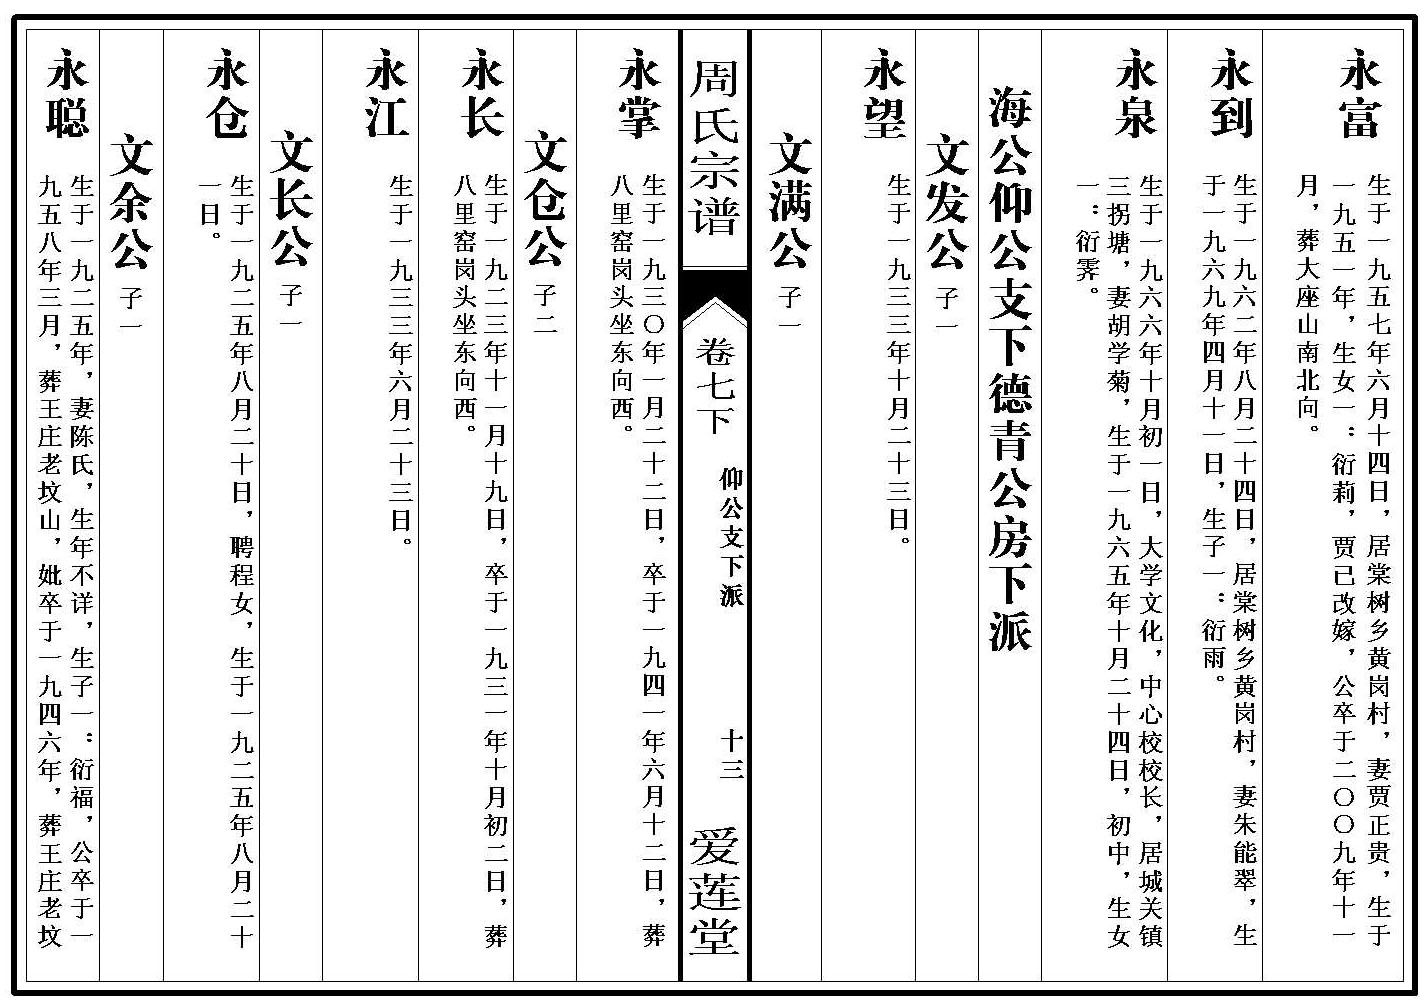 永富
生于一九五七年六月十四日，居棠树乡黄岗村，妻贾正贵，生于
一九五一年，生女一：衍莉，贾已改嫁，公卒于二〇〇九年十一
月，葬大座山南北向。
永到
生于一九六二年八月二十四日，居棠树乡黄岗村，妻朱能翠，生
于一九六九年四月十一日，生子一：衍雨。
永泉
生于一九六六年十月初一日，大学文化，中心校校长，居城关镇
三拐塘，妻胡学菊，生于一九六五年十月二十四日，初中，生女
一：衍霁。
海公仰公支下德青公房下派
文发公 子一
永望
生于一九三三年十月二十三日。
文满公 子一
周氏宗谱
卷七下
仰公支下派
十三
爱莲堂
永掌
生于一九三〇年一月二十二日，卒于一九四一年六月十二日，葬
八里窑岗头坐东向西。
文仓公 子二
永长
生于一九二三年十一月十九日，卒于一九三一年十月初二日，葬
八里窑岗头坐东向西。
永江
生于一九三三年六月二十三日。
文长公 子一
永仓
生于一九二五年八月二十日，聘程女，生于一九二五年八月二十
一日。
文余公 子一
永聪
生于一九二五年，妻陈氏，生年不详，生子一：衍福，公卒于一
九五八年三月，葬王庄老坟山，妣卒于一九四六年，葬王庄老坟